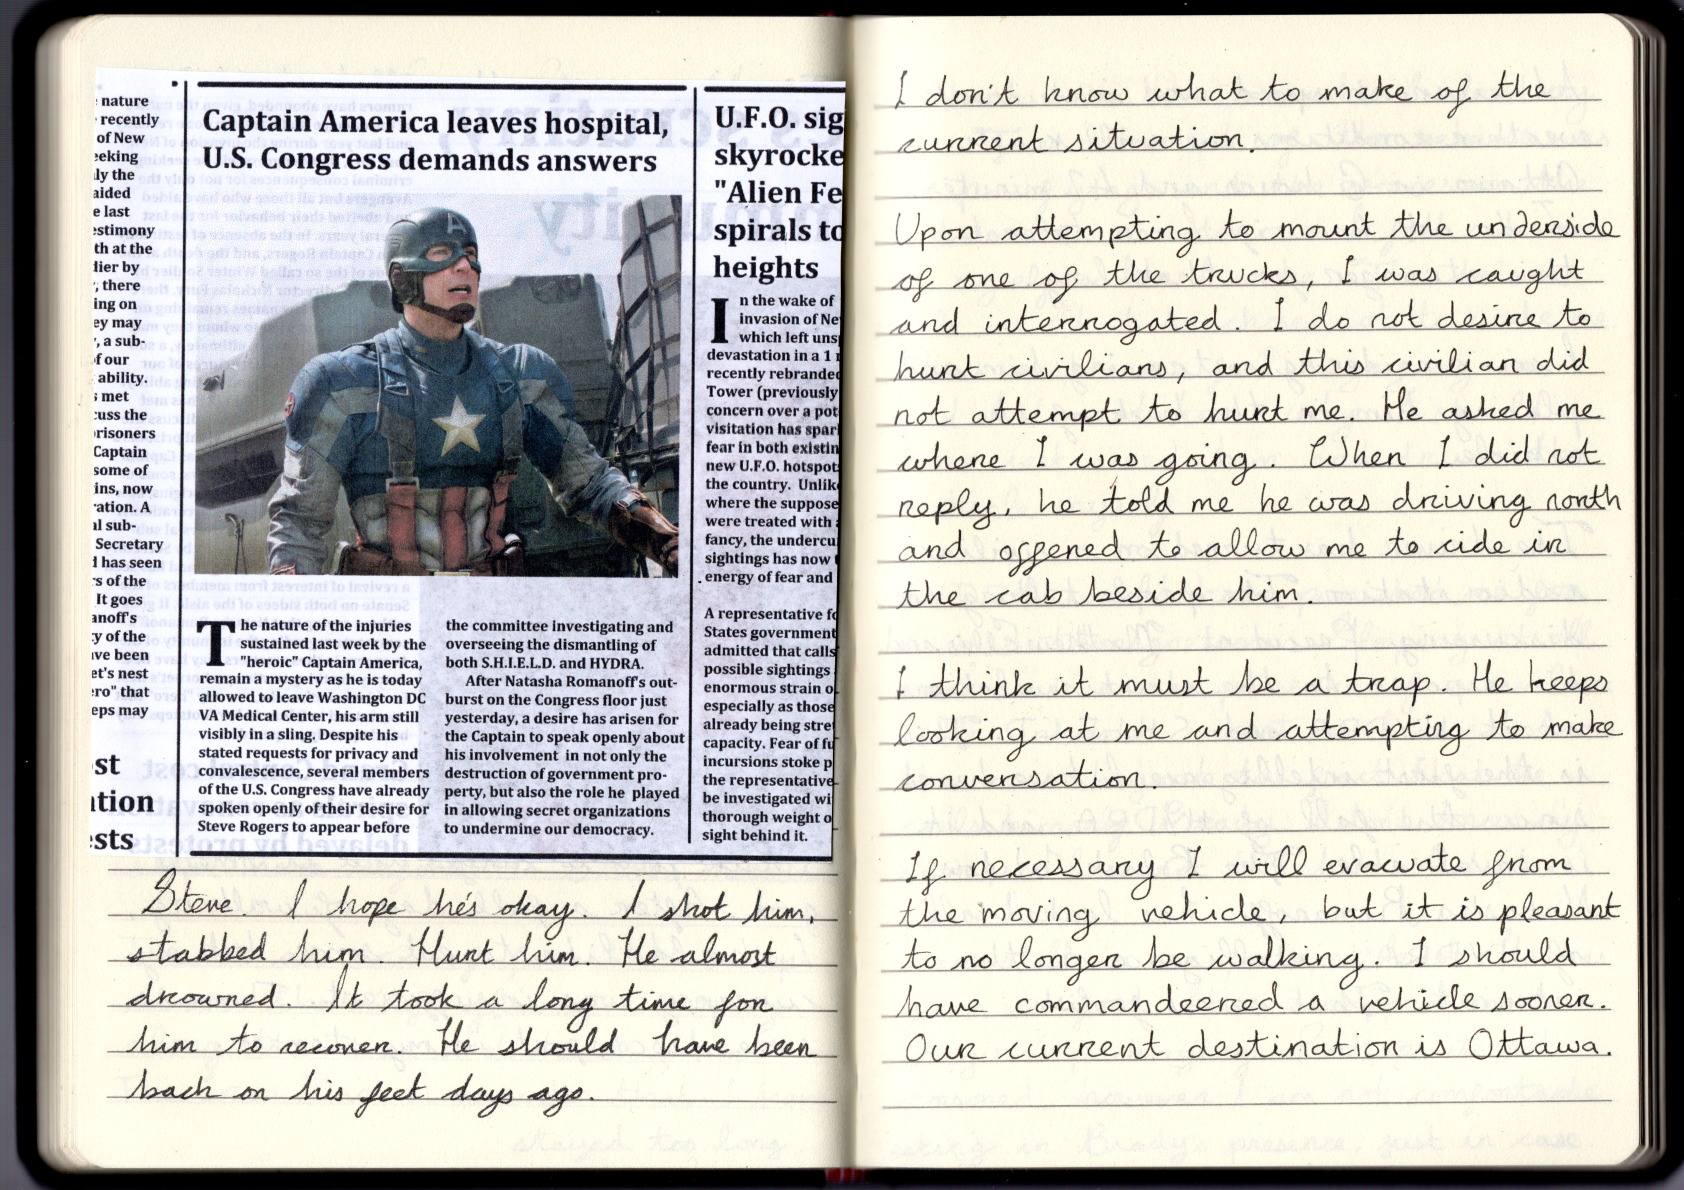 nature
recently
of New
eeking
ly the
aided
e last
estimony
th at the
dier by
, there
ing on
ey may
, a sub-
f our
ability.
met
cuss the
prisoners
Captain
some of
ins, now
ration. A
al sub-
Secretary
l has seen
rs of the
It goes
anoff's
ty of the
ave been
et's nest
ero" that
eps may
st
ation
ests
Captain America leaves hospital,
U.S. Congress demands answers
A
The nature of the injuries
sustained last week by the
"heroic" Captain America,
remain a mystery as he is today
allowed to leave Washington DC
VA Medical Center, his arm still
visibly in a sling. Despite his
stated requests for privacy and
convalescence, several members
of the U.S. Congress have already
spoken openly of their desire for
Steve Rogers to appear before
the committee investigating and
overseeing the dismantling of
both S.H.I.E.L.D. and HYDRA.
After Natasha Romanoff's out-
burst on the Congress floor just
yesterday, a desire has arisen for
the Captain to speak openly about
his involvement in not only the
destruction of government pro-
perty, but also the role he played
in allowing secret organizations
to undermine our democracy.
U.F.O. sig
skyrocke
"Alien Fe
spirals to
heights
In the wake of
invasion of Ne
which left uns
devastation in a 1
recently rebranded
Tower (previously
concern over a pot
visitation has spar
fear in both existin
new U.F.O. hotspot
the country. Unlik
where the suppose
were treated with
fancy, the undercu
sightings has now
energy of fear and
A representative fo
States government
admitted that calls
possible sightings
enormous strain o
especially as those
already being stre
capacity. Fear of fu
incursions stoke p
the representative
be investigated wi
thorough weight o
sight behind it.
Steve. I hope he's okay. I shot him,
stabbed him. Hurt him. He almost
drowned. It took a long time for
him to recover. He should have been
back on his feet days ago.
I don't know what to make of the
current situation.
Upon attempting to mount the underside
of one of the trucks, I was caught
and interrogated. I do not desire to
hurt civilians, and this civilian did
not attempt to hurt me. He asked me
where I was going. When I did not
reply, he told me he was driving north
and offered to allow me to ride in
the cab beside him.
I think it must be a trap. He keeps
looking at me and attempting to make
conversation.
If necessary I will evacuate from
the moving vehicle, but it is pleasant
to no longer be walking. I should
have commandeered a vehicle sooner.
Our current destination is Ottawa.